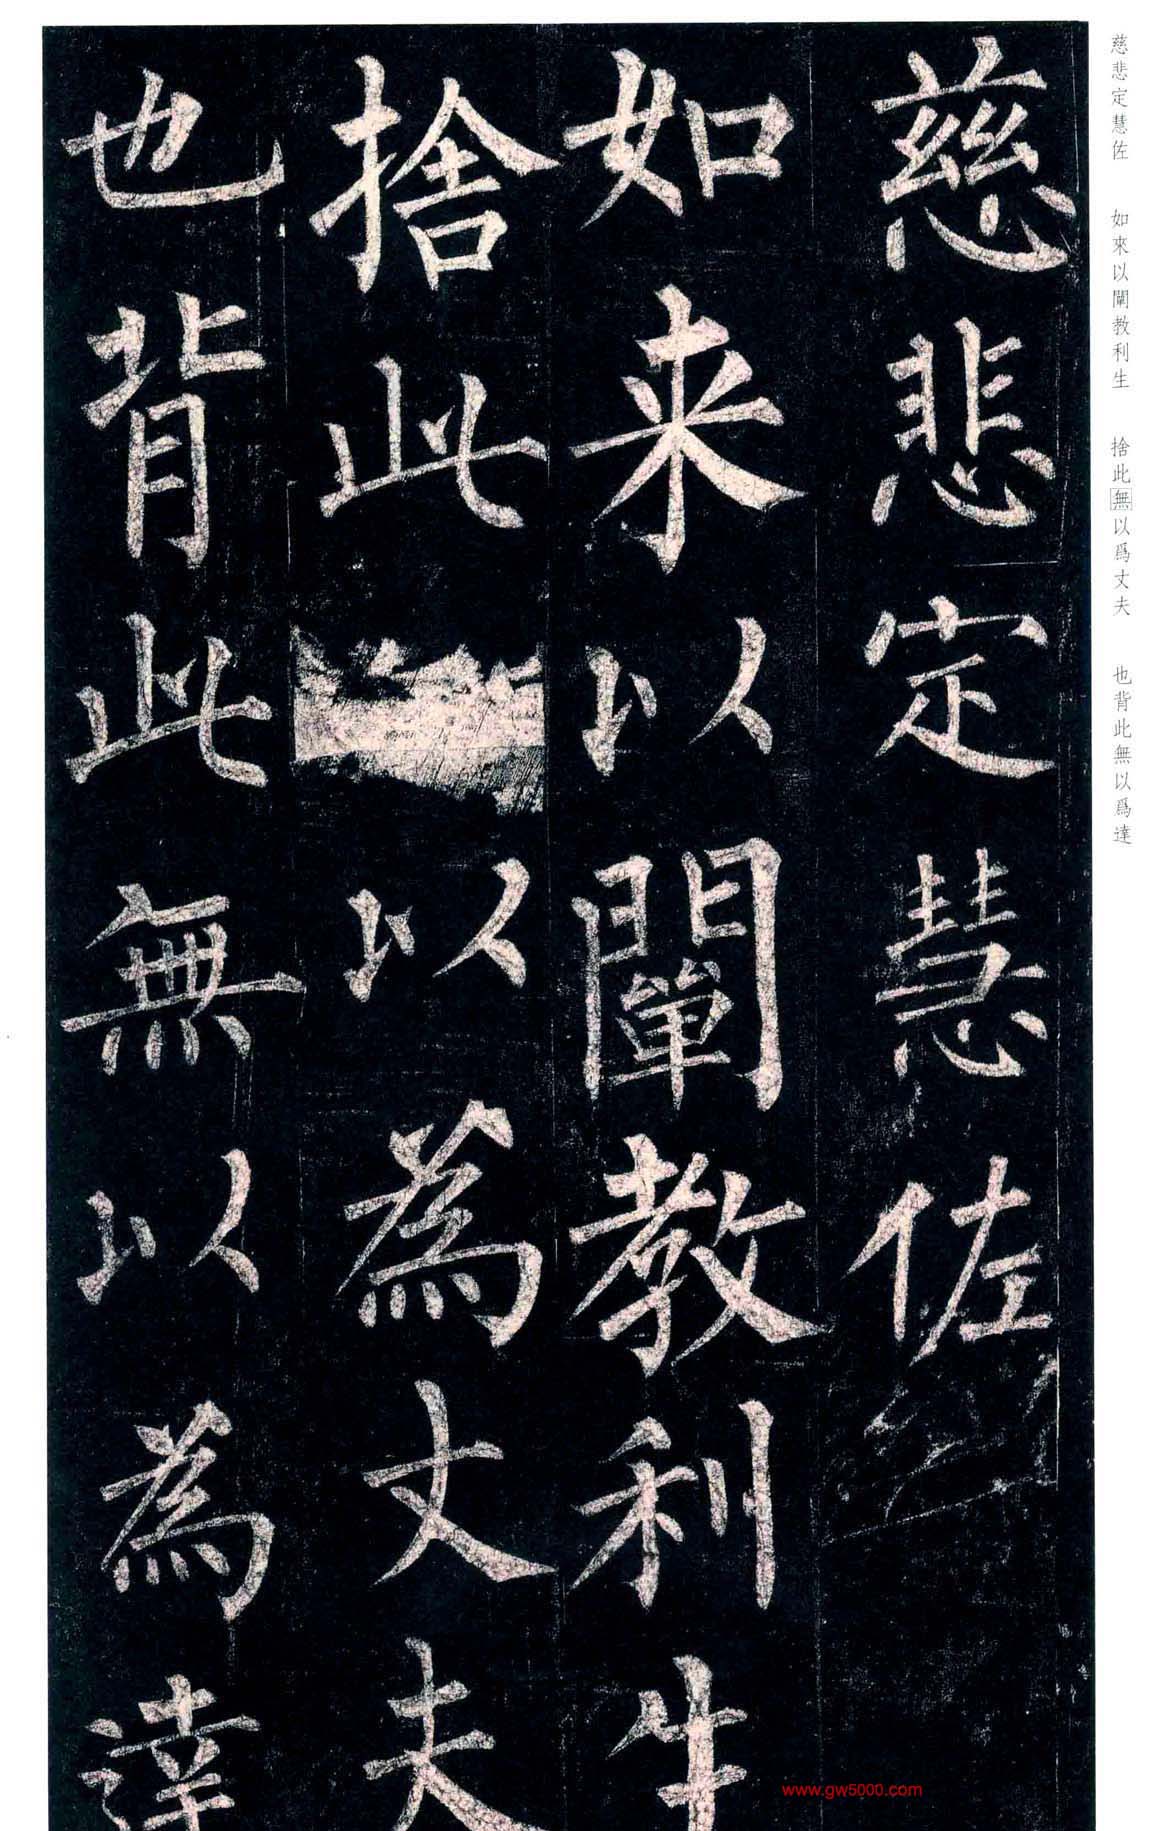 慈悲定慧佐
如来以闡教利生
捨此以為丈夫
也背此無以為達
慈悲定慧佐 如來以闡教利生 捨此無以爲丈夫 也背此無以爲達
www.gw5000.com